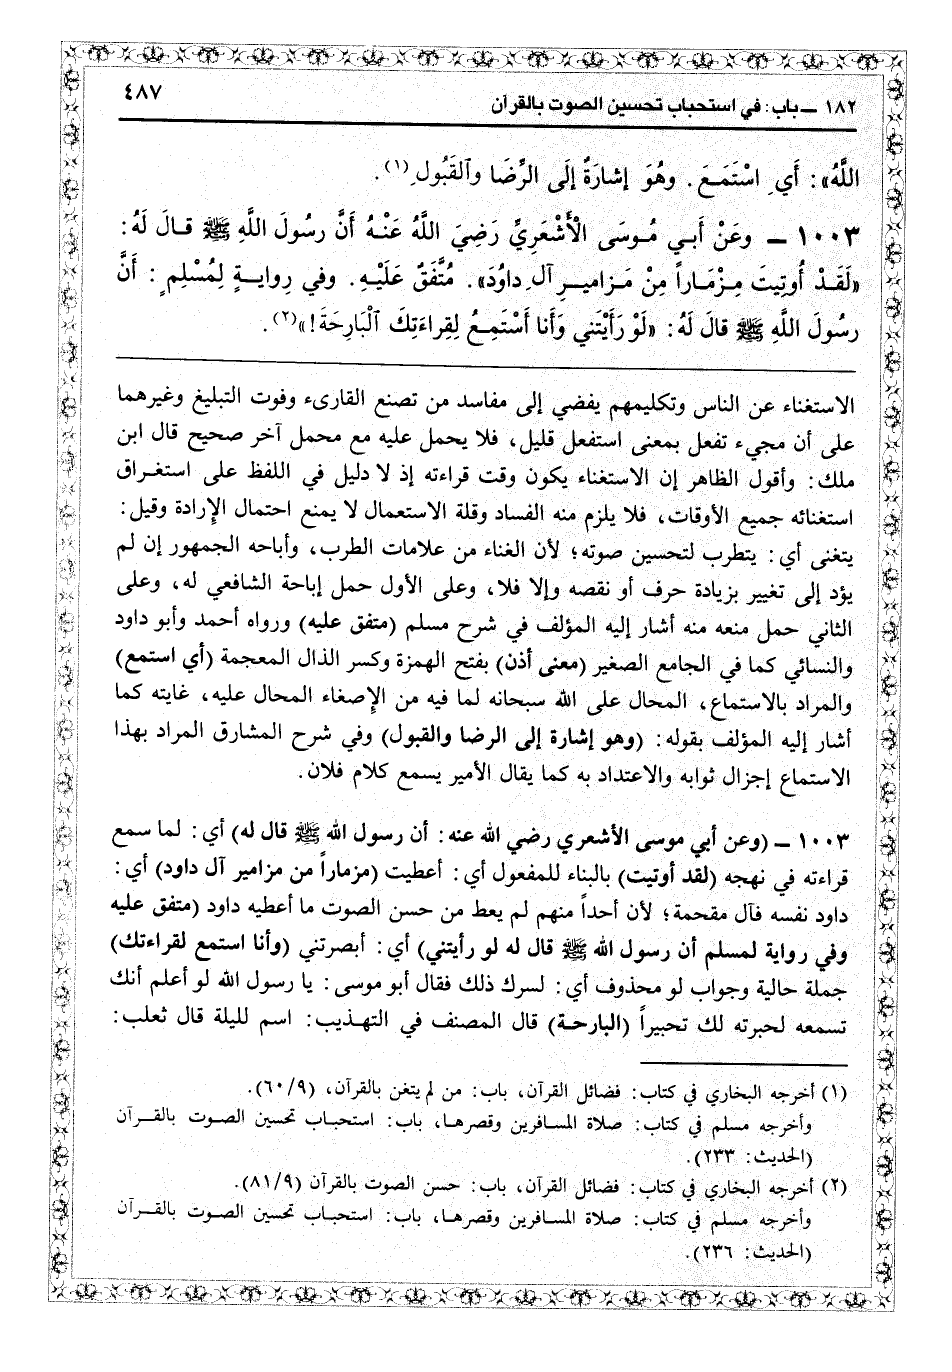 ١٨٢ ــ باب: في استحباب تحسين الصوت بالقرآن ٤٨٧
اللَّهُ»: أَيِ اسْتَمَعَ. وهُوَ إشارَةٌ إلَى الرِّضَا وٱلقَبُولِ(١).
١٠٠٣ ــ وعَنْ أَبـي مُـوسَى الْأَشْعَرِيِّ رَضِيَ اللَّهُ عَنْـهُ أَنَّ رسُولَ اللَّهِ ﷺ قـالَ لَهُ:
«لَقَـدْ أُوتِيتَ مِـزْمَـاراً مِنْ مَـزاميـرِ آلِ داوُدَ». مُتَّفَقٌ عَلَيْـهِ. وفي رِوايـةٍ لِمُسْلِمٍ: أَنَّ
رسُولَ اللَّهِ ﷺ قالَ لَهُ: «لَوْ رَأَيْتَني وَأَنا أَسْتَمِعُ لِقِراءَتِكَ ٱلْبَارِحَةَ!»(٢).
الاستغناء عن الناس وتكليمهم يفضي إلى مفاسد من تصنع القارىء وفوت التبليغ وغيرهما
على أن مجيء تفعل بمعنى استفعل قليل، فلا يحمل عليه مع محمل آخر صحيح قال ابن
ملك: وأقول الظاهر إن الاستغناء يكون وقت قراءته إذ لا دليل في اللفظ على استغـراق
استغنائه جميع الأوقات، فلا يلزم منه الفساد وقلة الاستعمال لا يمنع احتمال الإرادة وقيل:
يتغنى أي: يتطرب لتحسين صوته؛ لأن الغناء من علامات الطرب، وأباحه الجمهور إن لم
يؤد إلى تغيير بزيادة حرف أو نقصه وإلا فلا، وعلى الأول حمل إباحة الشافعي له، وعلى
الثاني حمل منعه منه أشار إليه المؤلف في شرح مسلم (متفق عليه) ورواه أحمد وأبو داود
والنسائي كما في الجامع الصغير (معنى أذن) بفتح الهمزة وكسر الذال المعجمة (أي استمع)
والمراد بالاستماع، المحال على الله سبحانه لما فيه من الإصغاء المحال عليه، غايته كما
أشار إليه المؤلف بقوله: (وهو إشارة إلى الرضا والقبول) وفي شرح المشارق المراد بهذا
الاستماع إجزال ثوابه والاعتداد به كما يقال الأمير يسمع كلام فلان.
١٠٠٣ ــ (وعن أبي موسى الأشعري رضي الله عنه: أن رسول الله ﷺ قال له) أي: لما سمع
قراءته في نهجه (لقد أوتيت) بالبناء للمفعول أي: أعطيت (مزماراً من مزامير آل داود) أي:
داود نفسه فآل مقحمة؛ لأن أحداً منهم لم يعط من حسن الصوت ما أعطيه داود (متفق عليه
وفي رواية لمسلم أن رسول الله ﷺ قال له لو رأيتني) أي: أبصرتني (وأنا استمع لقراءتك)
جملة حالية وجواب لو محذوف أي: لسرك ذلك فقال أبو موسى: يا رسول الله لو أعلم أنك
تسمعه لحبرته لك تحبيراً (البارحة) قال المصنف في التهـذيب: اسم لليلة قال ثعلب:
(١) أخرجه البخاري في كتاب: فضائل القرآن، باب: من لم يتغن بالقرآن، (٦٠/٩).
وأخرجه مسلم في كتاب: صلاة المسافرين وقصرهـا، باب: استحبـاب تحسين الصـوت بالقـرآن
(الحديث: ٢٣٣).
(٢) أخرجه البخاري في كتاب: فضائل القرآن، باب: حسن الصوت بالقرآن (٨١/٩).
وأخرجه مسلم في كتاب: صلاة المسافرين وقصرهـا، باب: استحبـاب تحسين الصـوت بالقـرآن
(الحديث: ٢٣٦).